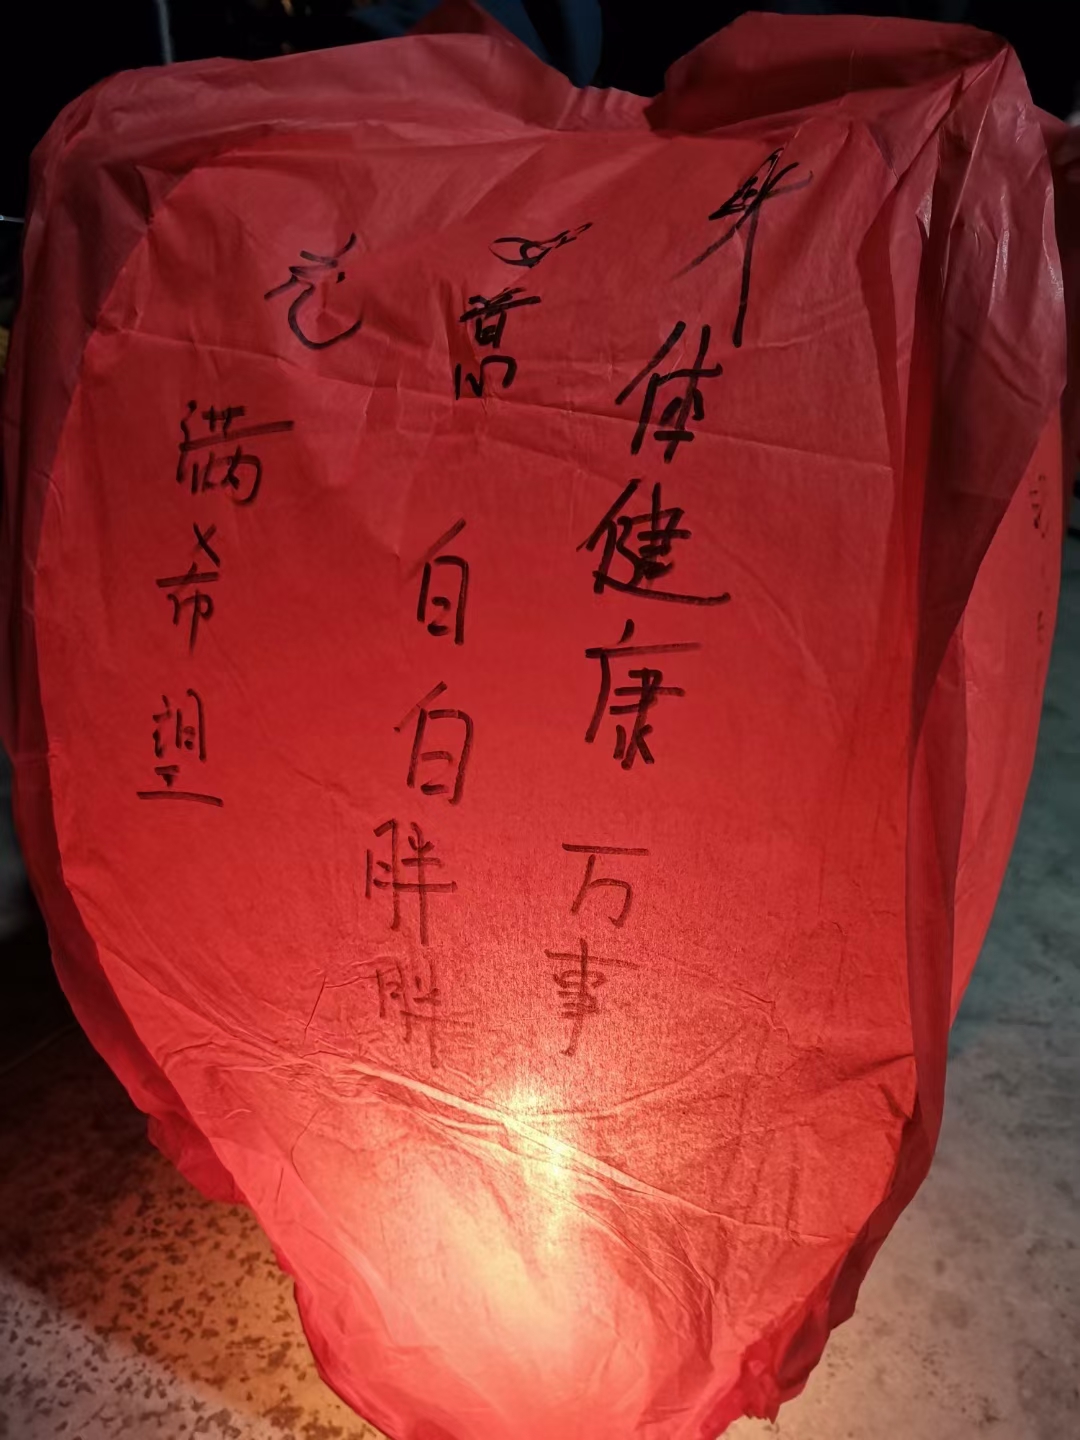 身体健康万事
白白胖胖
充满希望